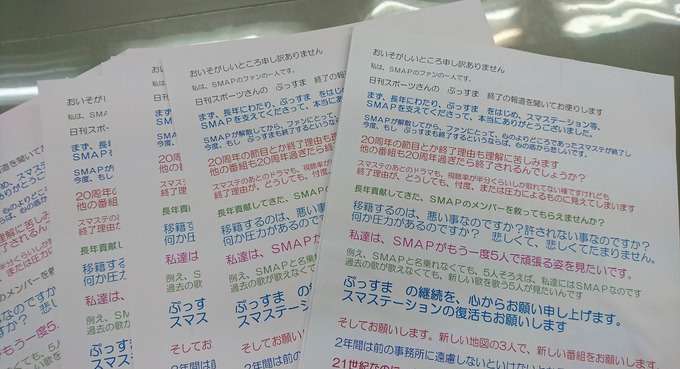 おいそがしいところ申し訳ありません
私は、SMAPのファンの一人です。
日刊スポーツさんの ぷっすま 終了の報道を聞いてお便りします
まず、長年にわたり、ぷっすま をはじめ、スマステーション等、
SMAPを支えてくださって、本当にありがとうございました。
SMAPが解散してから、ファンにとって、心のよりどころであったスマステが終了し
今度、もし ぷっすまも終了するというならば、心の底から悲しいです。
20周年の節目とか終了理由も理解に苦しみます
他の番組も20周年過ぎたら終了されるんでしょうか?
スマステのあとのドラマも、視聴率が半分ぐらいしか取れてない様ですけれども
終了理由が、どうしても、忖度、または圧力によるものに見えてしまいます
長年貢献してきた、SMAPのメンバーを救ってもらえませんか?
移籍するのは、悪い事なのですか?許されない事なのですか?
何か圧力があるのですか? 悲しくて、悲しくてたまりません。
私達は、SMAPがもう一度5人で頑張る姿を見たいです。
例え、SMAPと名乗れなくても、5人そろえば、私達にはSMAPなのです
過去の歌が歌えなくても、新しい歌を歌う5人が見たいんです
ぷっすま の継続を、心からお願い申し上げます。
スマステーションの復活もお願いします
そしてお願いします。新しい地図の3人で、新しい番組をお願いします。
2年間は前の事務所に遠慮しないといけないとか
21世紀なのに